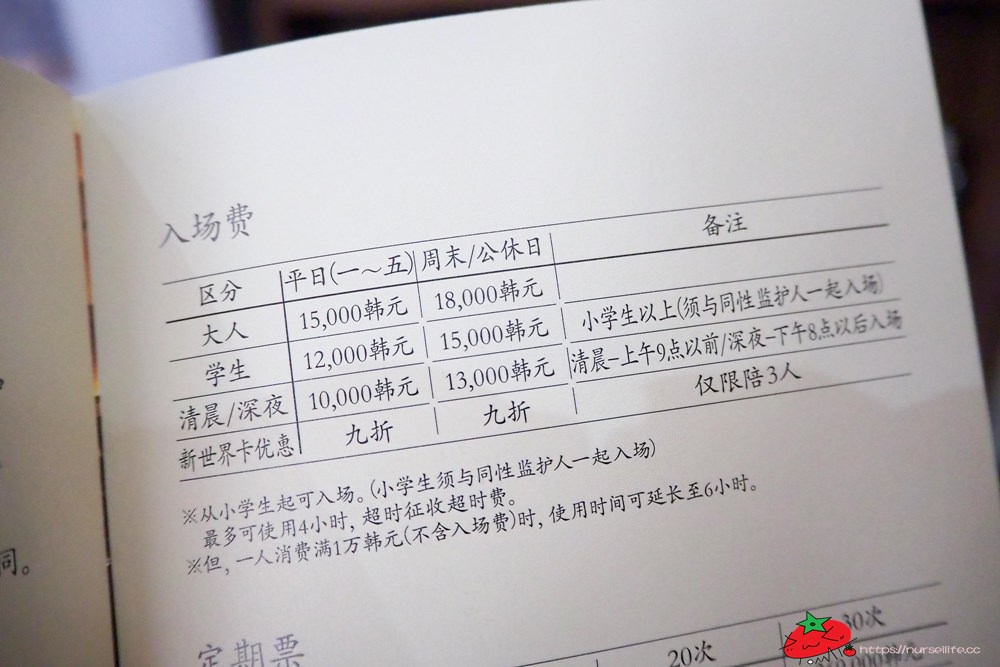 入场费
区分 平日(一～五) 周末/公休日 备注
大人 15,000韩元 18,000韩元
学生 12,000韩元 15,000韩元 小学生以上(须与同性监护人一起入场)
清晨/深夜 10,000韩元 13,000韩元 清晨-上午9点以前/深夜-下午8点以后入场
新世界卡优惠 九折 九折 仅限陪3人
※从小学生起可入场。(小学生须与同性监护人一起入场)
最多可使用4小时, 超时征收超时费。
※但, 一人消费满1万韩元(不含入场费)时, 使用时间可延长至6小时。
同。
定期票
20次 30次
https://nurselife.cc